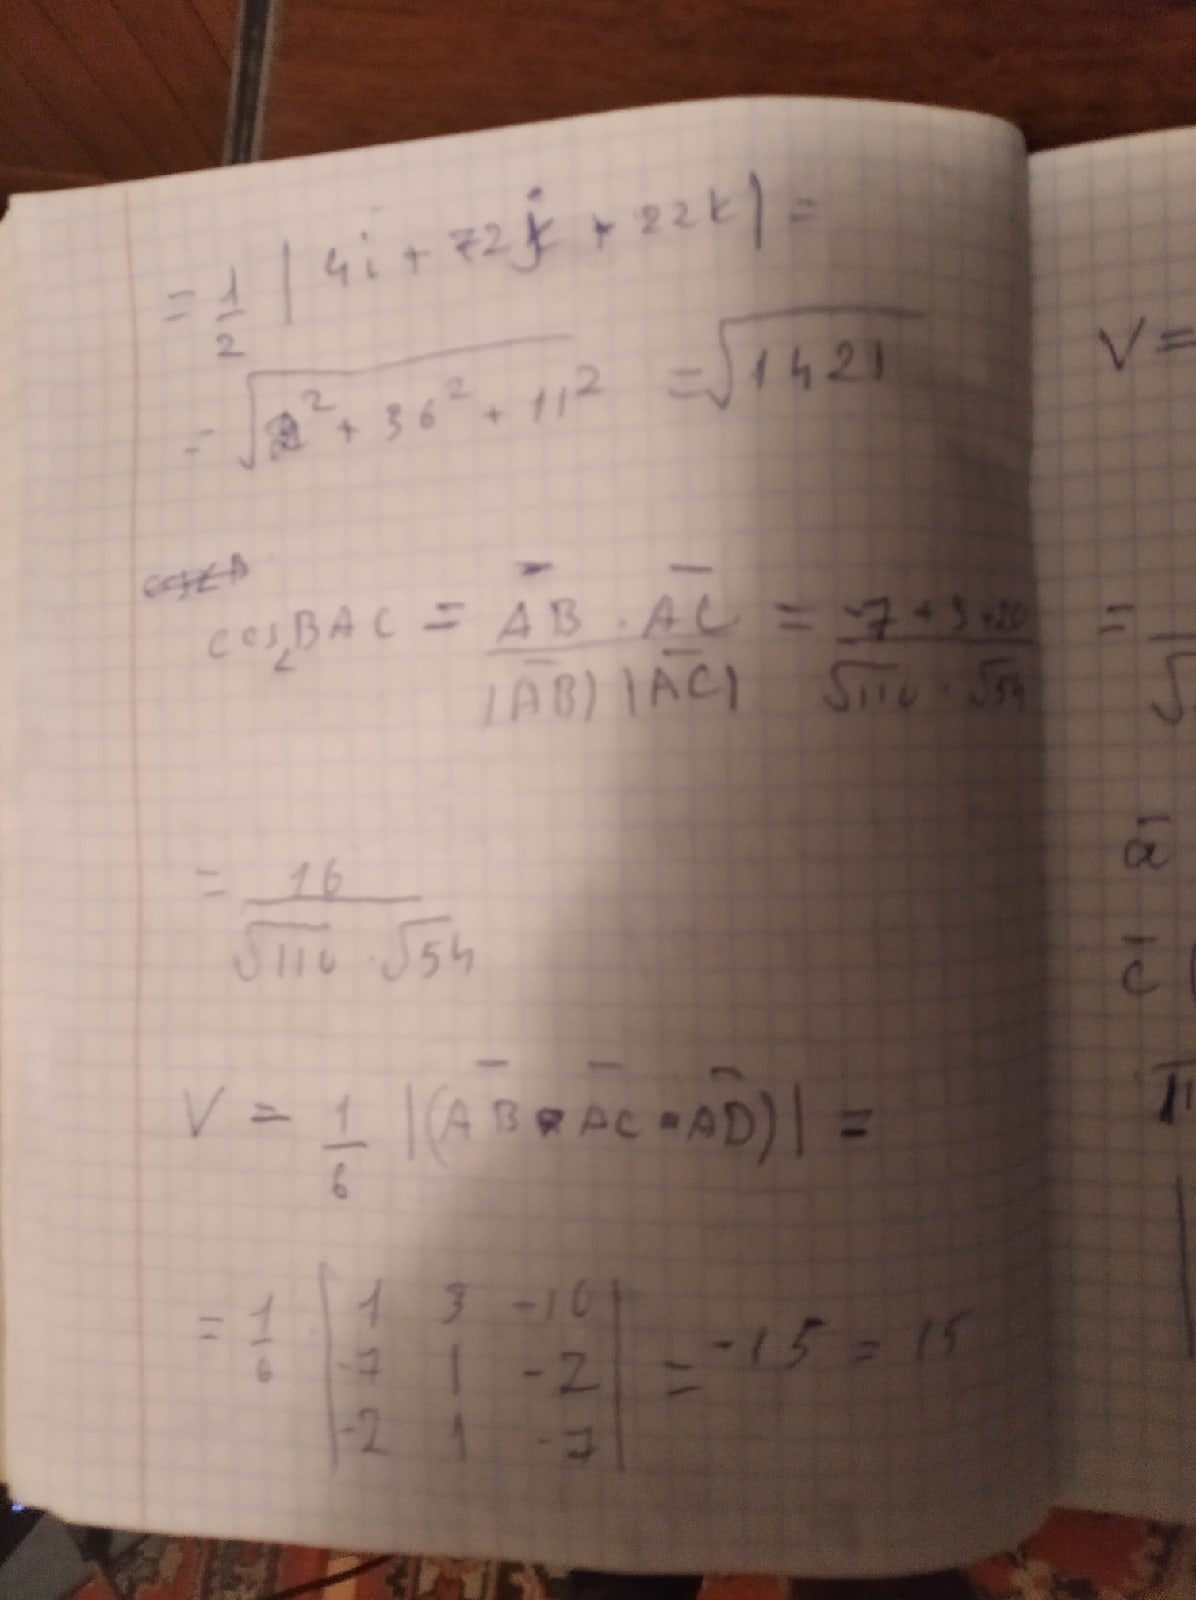 = 1/2 | 4i + 72j + 22k | =
= √(2² + 36² + 11²) = √1421
cos∠BAC = (AB̅ · AC̅) / (|AB̅| |AC̅|) = (-7 + 3 + 20) / (√110 · √54)
= 16 / (√110 · √54)
V = 1/6 |(AB̅ · AC̅ · AD̅)| =
= 1/6 | 1 3 -10 |
| -7 1 -2 | = -15 = 15
| -2 1 -7 |
V =
=
ā
c̄